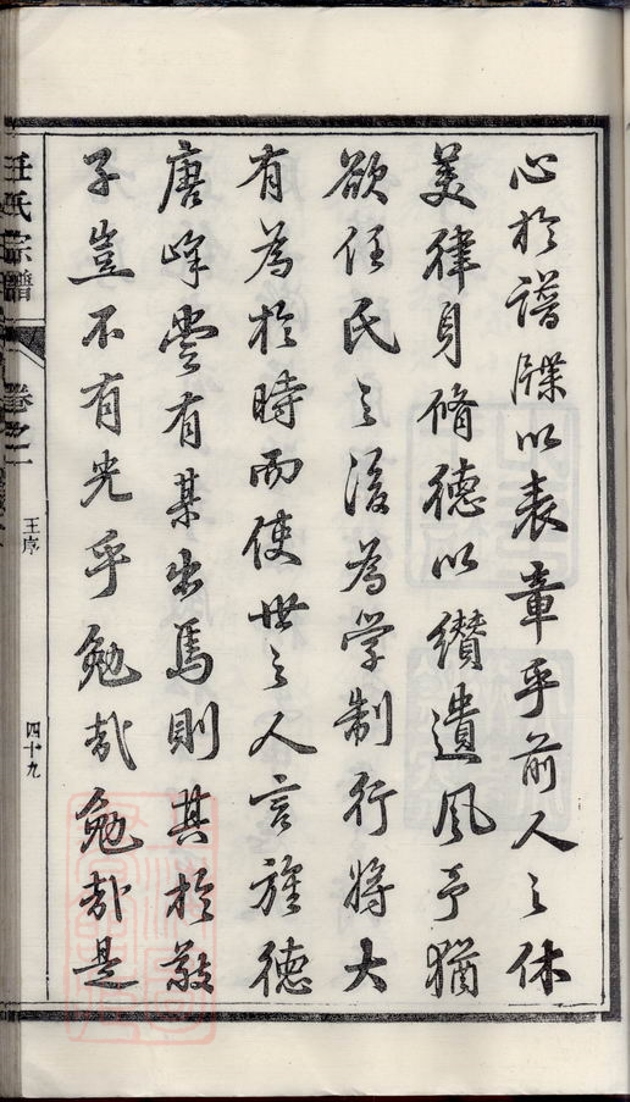 心於譜牒以表章乎前人之休
美律身脩德以纘遺風予猶
欲任氏之後為学制行將大
有為於時而使世之人言旌德
唐峰雲有某出焉則其於敬
子豈不有光乎勉哉勉哉是
任氏宗譜
卷之二
王序
四十九